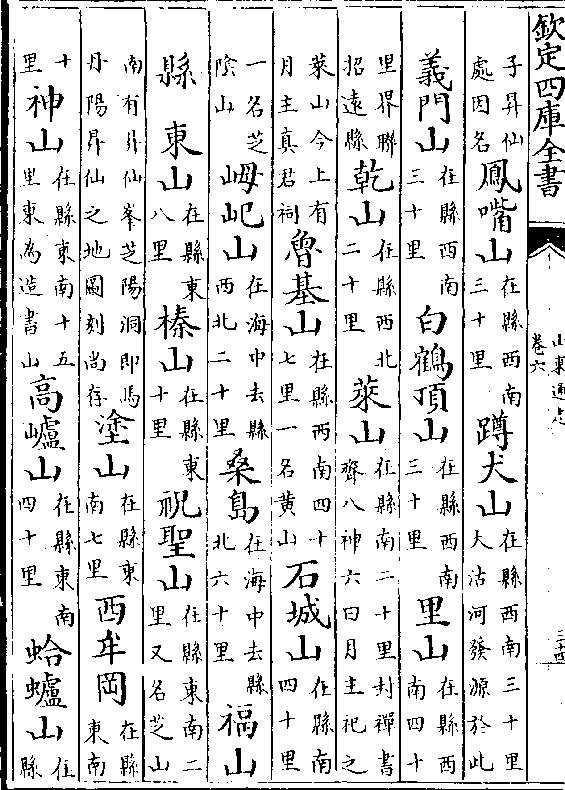 欽定四庫全書
山東通志
卷六
三十四
子昇仙處因名鳳嘴山在縣西南三十里蹲犬山在縣西南三十里大沽河發源於此
義門山在縣西南三十里白鶴頂山在縣西南三十里里山在縣西南四十
里界聯招遠縣乾山在縣西北二十里萊山在縣南二十里封禪書齊八神六曰月主祀之
萊山今上有月主真君祠魯基山在縣西南四十七里一名黄山石城山在縣南四十里
一名芝陰山峔屺山在海中去縣西北二十里桑島在海中去縣北六十里福山
縣東山在縣東八里榛山在縣東十里祝聖山在縣東南二里又名芝山
南有昇仙峯芝陽洞即馬丹陽昇仙之地圖刻尚存塗山在縣東南七里西牟岡在縣東南
十里神山在縣東南十五里東為造書山高㠠山在縣東南四十里蛤蠦山在縣